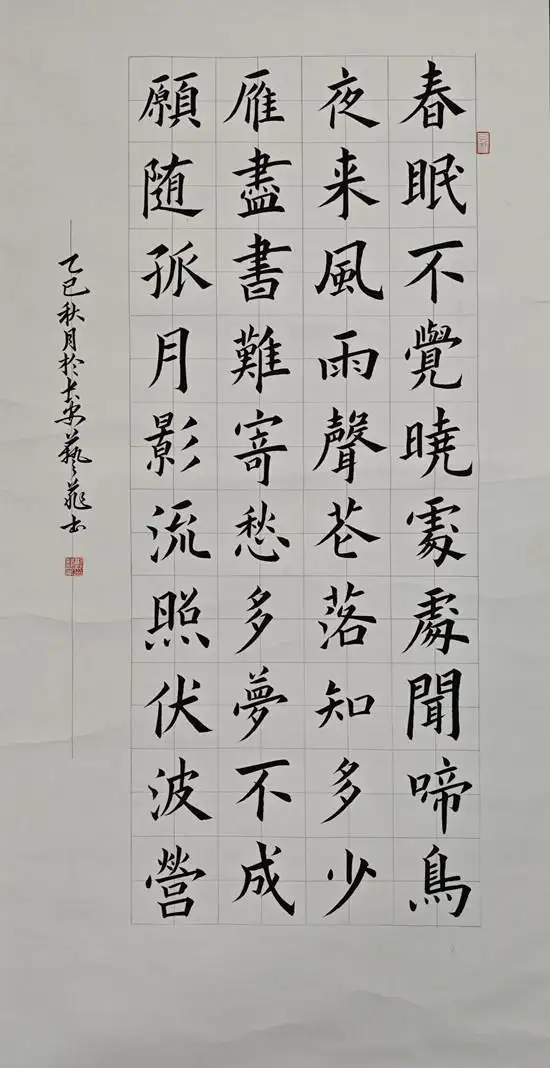 春眠不覺曉處處聞啼鳥
夜来風雨聲花落知多少
雁盡書難寄愁多夢不成
願随孤月影流照伏波營
乙巳秋月於长安藝